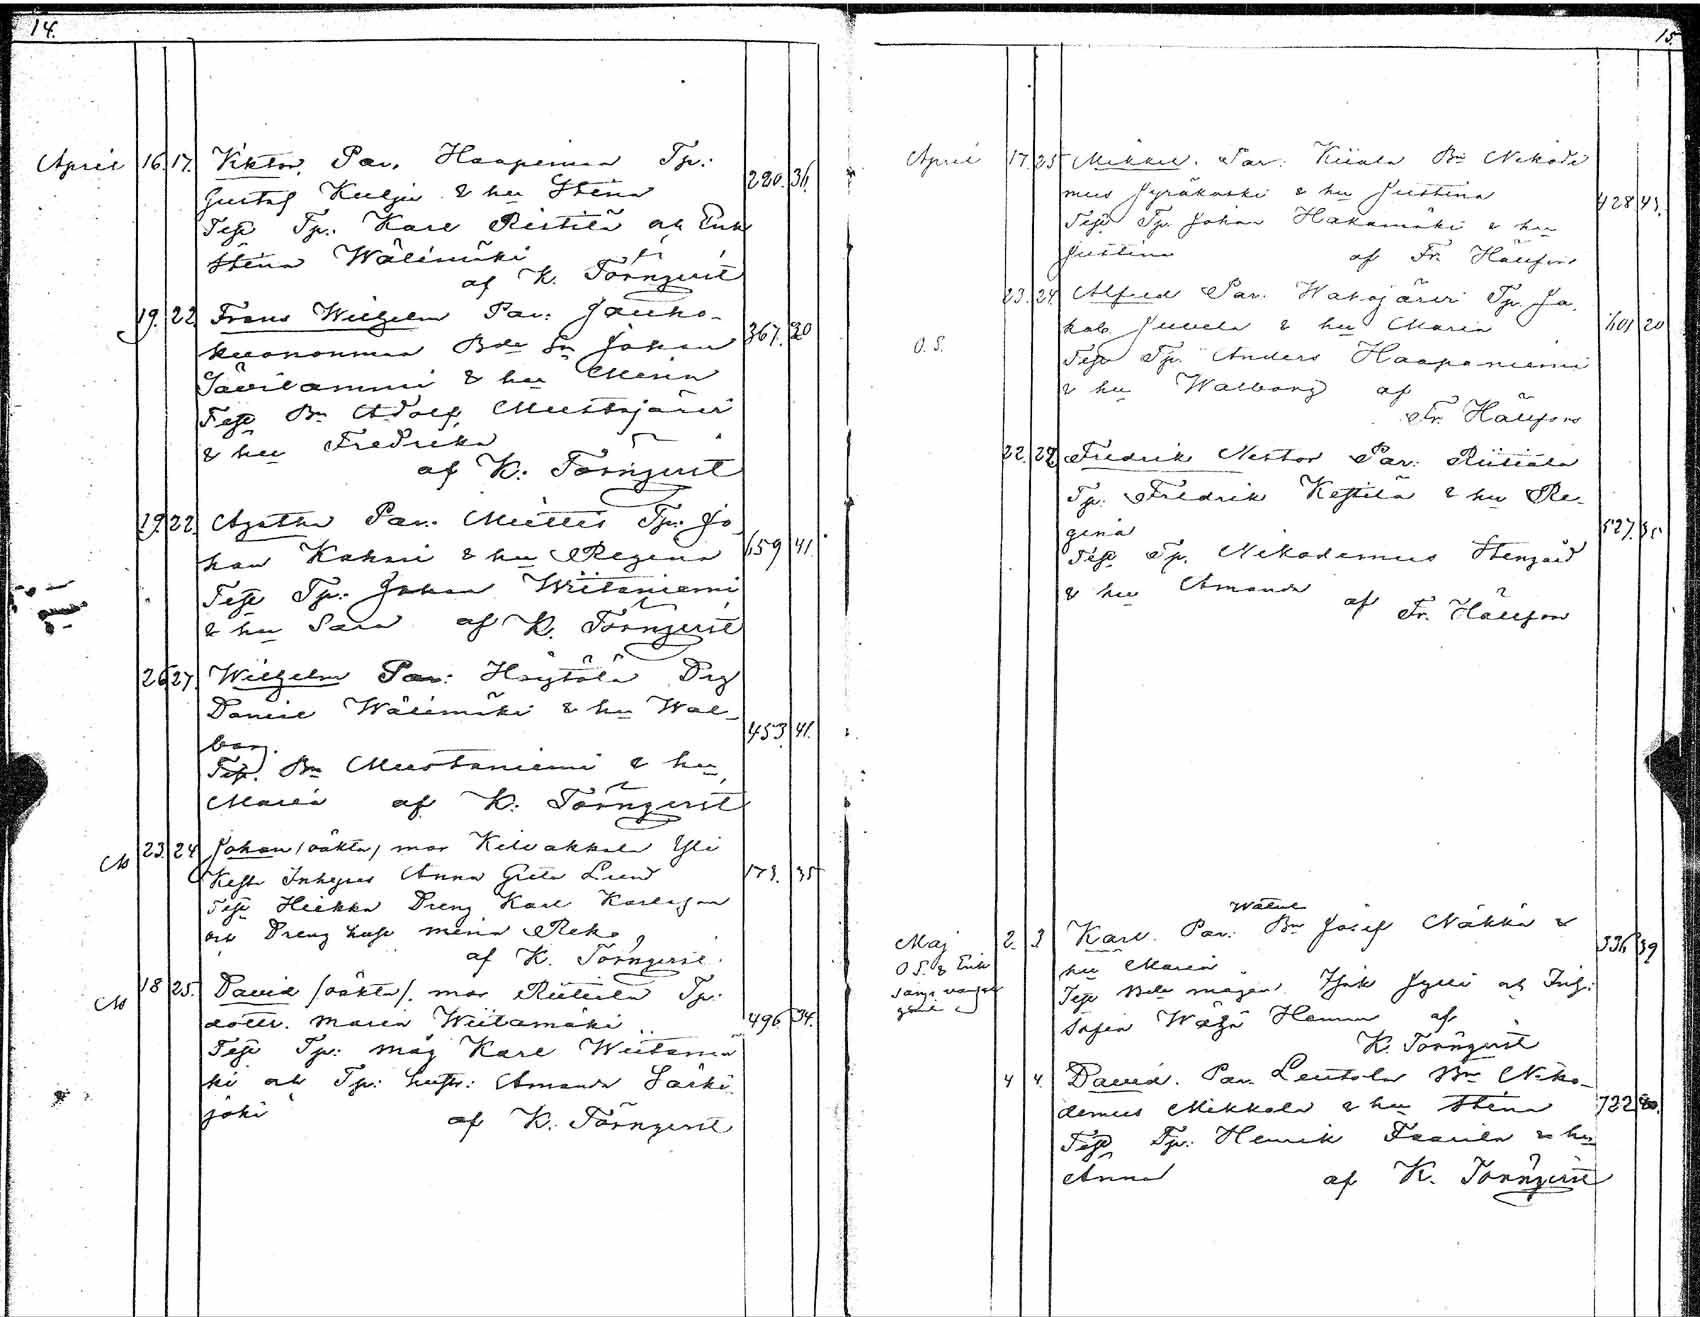 14.
April 16. 17. Viktor, Par. Haapemaa Tp:
Gustaf Kulju & hu Stina 220. 36.
Test Tp: Karl Ristilä och Enk
Stina Wälimäki
af K. Törnqvist
19. 22 Frans Wilhelm Par: Jauho-
Bde Sn Johan 367. 30
& hu Mina
Test Bn Adolf Mustajärvi
& hu Fredrika
af K. Törnqvist
19. 22. Agatha Par: Miettis Tp: Jo
han Kahari & hu Regina 659 41.
Test Tp: Johan Wiitaniemi
& hu Sara af K. Törnqvist
26 27. Wilhelm Par: Höytölä Drg
Daniel Wälimäki & hu Wal-
borg. 453. 41.
Test. Bn Mustaniemi & hu
Maria af K: Törnqvist
23. 24 Johan /oäkta/ mor Kilvakkala Yli
Inhyses Anna Greta Lund 173. 35
Test Heikka Dreng Karl Karlsson
och Dreng hust mina Reko
af K. Törnqvist.
18 25. David /oäkta/. mor Riitiala Tp:
dotter. Maria Wiitamäki 496 34.
Test Tp: måg Karl Wiitamä
ki och Tp: hustr: Amanda Särki
joki af K. Törnqvist
15.
April 17. 25 Mikkel. Par: Kiiala Bn Nikode
mus Jyräkoski & hu Justina 428 43.
Test Tp. Johan Hakamäki & hu
Justina af Fr. Hällfors
23. 24. Alfred Par: Wahojärvi Tp. Ja-
kob Juvela & hu Maria 601 20
O.S.
Test Tp. Anders Haapaniemi
& hu Walborg af
Fr. Hällfors
22. Fredrik Nestor Par: Riitiala
Tp. Fredrik Kestilä & hu Re-
gina 527. 35
Test Tp. Nikodemus Stengård
& hu Amanda
af Fr. Hällfors
Maj 2. 3 Karl. Par: Bn Josef Näkkä &
O S. & Enk
hu Maria 336 39
Test Bde mågen Isak Jylli och Inh:
Sofia af
K. Törnqvist
4 4. David. Par. Lentola Bn Niko-
demus Mikkola & hu Stina 722
Test Tp: Henrik & hu
Anna af K. Törnqvist